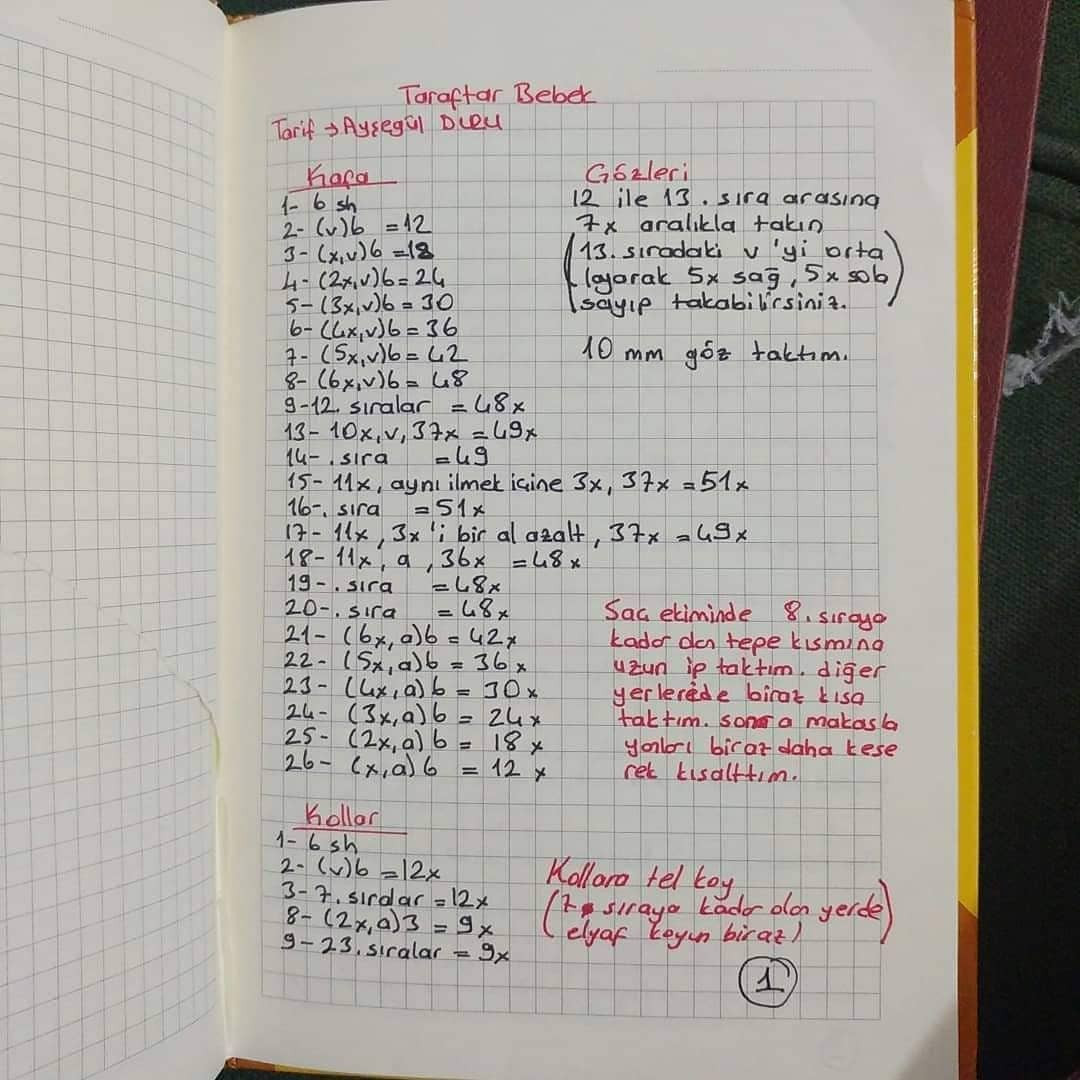 Taraftar Bebek
Tarif → Ayşegül Duru
Kafa
1- 6 sh
2- (v)6 =12
3- (x,v)6 =18
4- (2x,v)6=24
5- (3x,v)6=30
6- (4x,v)6=36
7- (5x,v)6=42
8- (6x,v)6= 48
9-12. sıralar =48x
13- 10x,v,37x =49x
14-. sıra =49
15- 11x, aynı ilmek içine 3x, 37x =51x
16-. sıra =51x
17- 11x, 3x'i bir al azalt, 37x =49x
18- 11x, a, 36x =48x
19-. sıra =48x
20-. sıra =48x
21- (6x,a)6 = 42x
22- (5x,a)6 = 36x
23- (4x,a)6 = 30x
24- (3x,a)6 = 24x
25- (2x,a)6 = 18x
26- (x,a)6 = 12x
Gözleri
12 ile 13. sıra arasına
7x aralıkla takın
(13. sıradaki v'yi orta
layarak 5x sağ, 5x sola
sayıp takabilirsiniz.)
10 mm göz taktım.
Saç ekiminde 8. sıraya
kadar olan tepe kısmına
uzun ip taktım. diğer
yerlerede biraz kısa
taktım. sonra makasla
yanları biraz daha kese
rek kısalttım.
Kollar
1- 6 sh
2- (v)6 =12x
3-7. sıralar =12x
8- (2x,a)3 = 9x
9-23. sıralar = 9x
Kollara tel koy
(7. sıraya kadar olan yerde
elyaf koyun biraz)
1